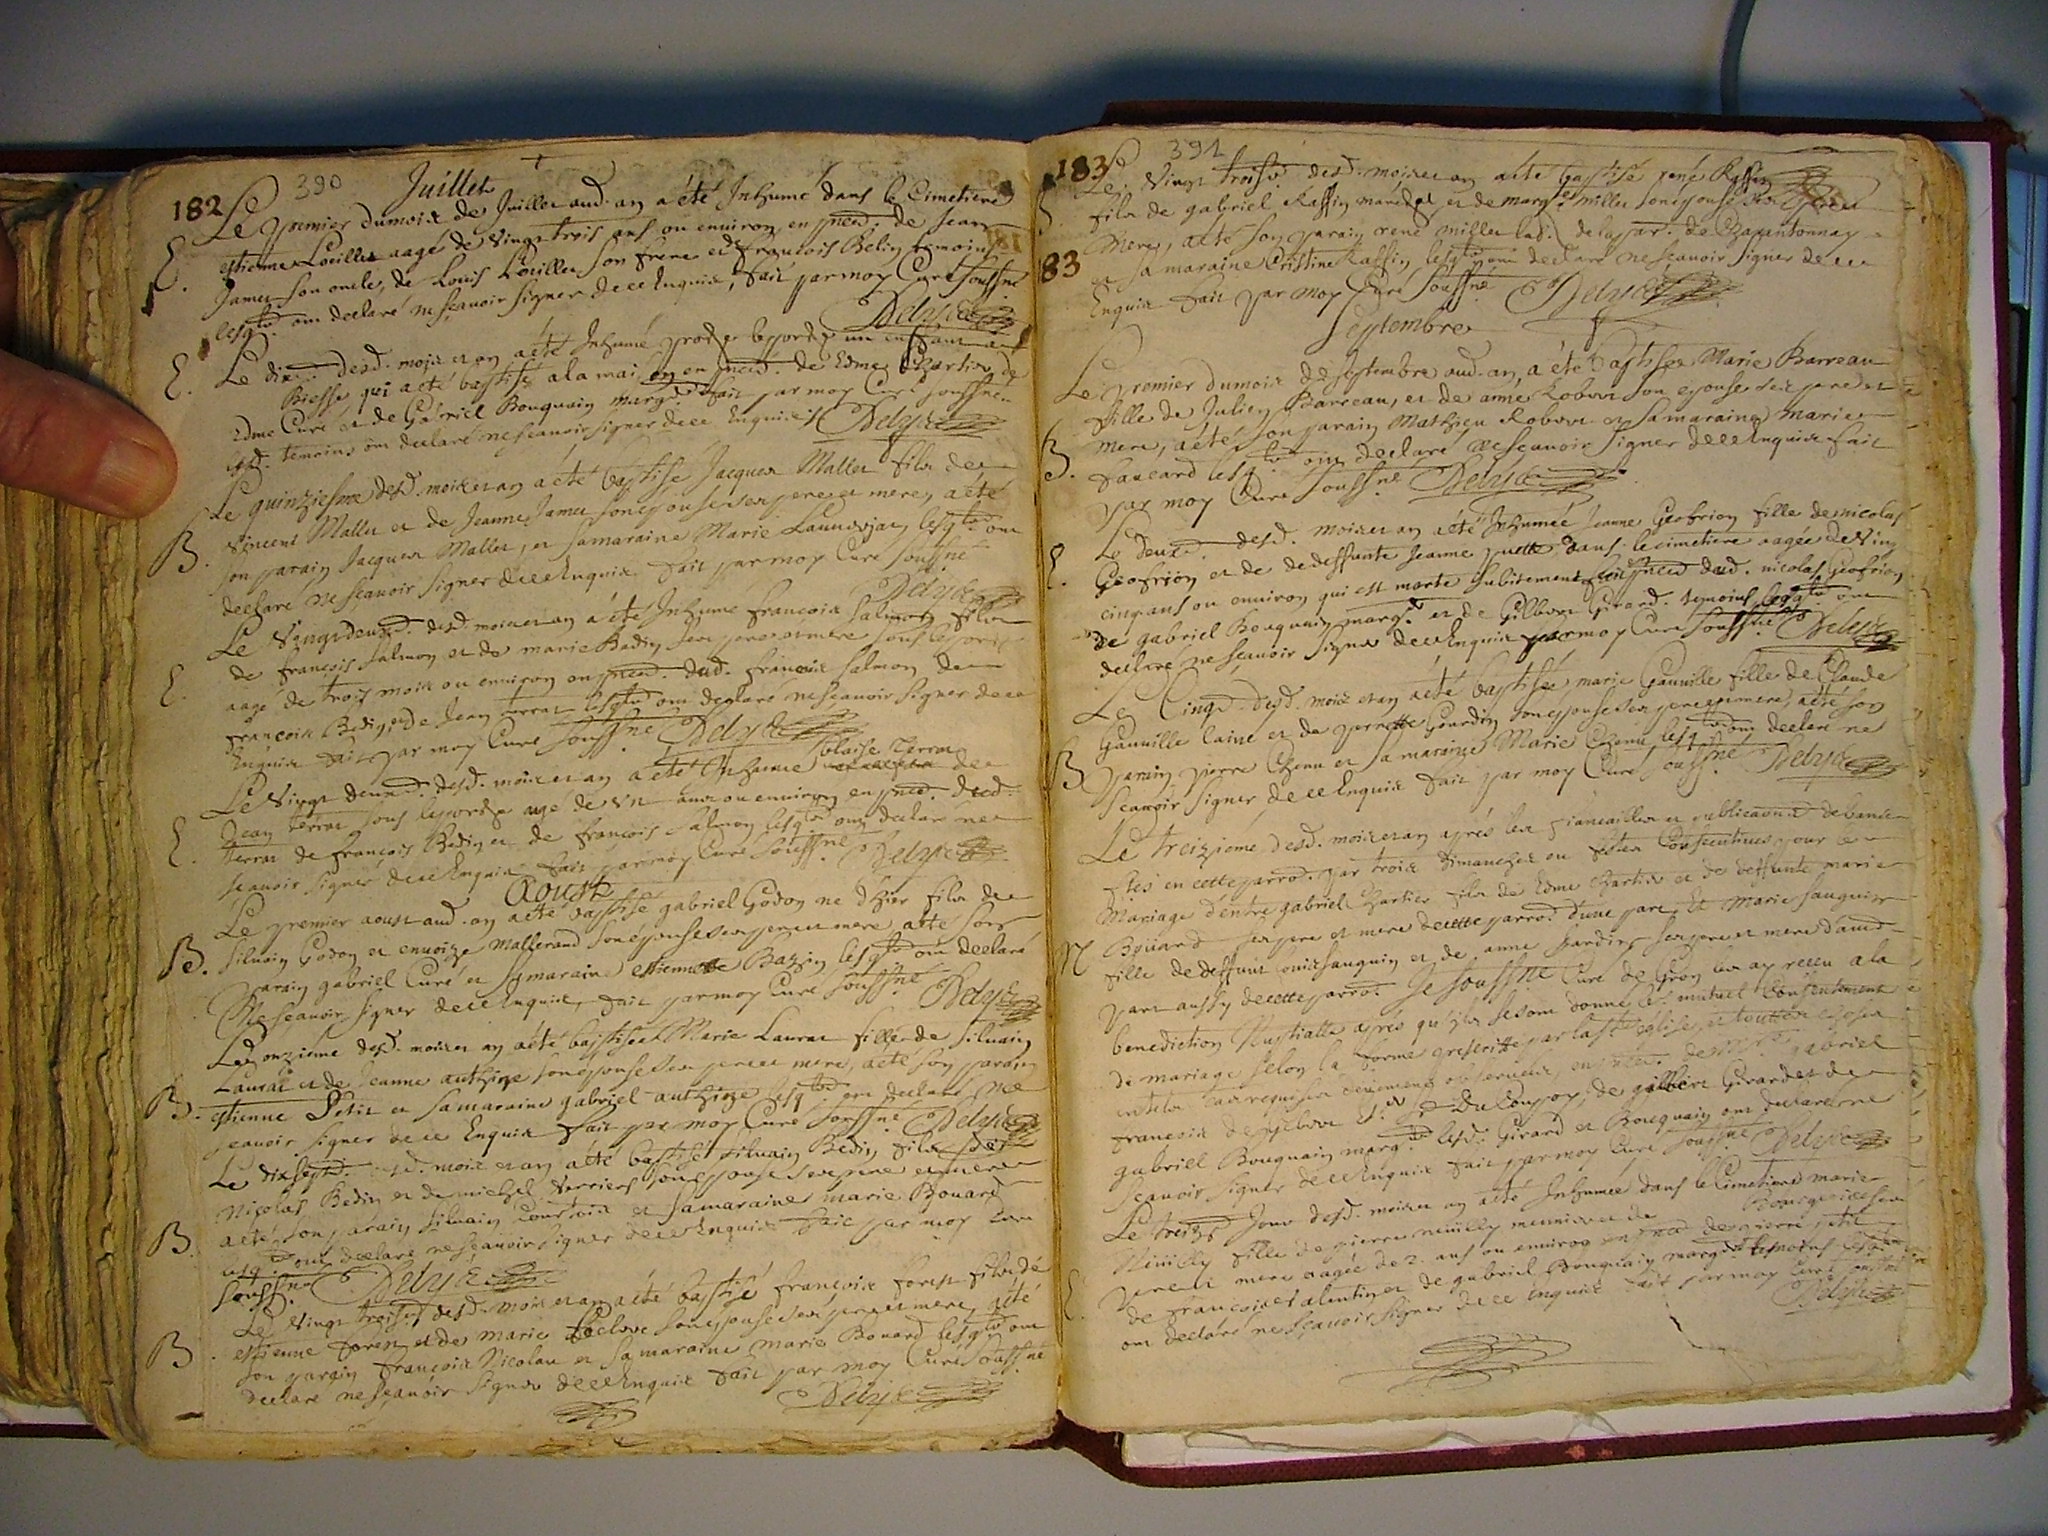 182 390 Juillet
Le premier du moix de Juillet aud. an a été Inhumé dans le Cimetiere
estienne Loeillet aagé de vingt trois ans ou environ en pnced. de Jean
E. Jamet son oncle, de Louis Loeillet son frere et de françois Belin temoins
lesqls ont declaré ne scavoir signer de ce Enquis, fait par moy Curé soussné
Delyé
Le dix desd. moix et an a été Inhumé proche le porche un enfant
E. Biesse qui a été baptisé a la maison en pnced. de Edme Chartier, de
Edme Curé et de Gabriel Bouquain marg. fait par moy Curé soussné
lesd. temoins ont declaré ne scavoir signer de ce Enquis Delyé
Le quinziesme desd. moix et an a été baptisé Jacques Mallet filx de
Vincent Mallet et de Jeanne Jamet son epouse ses pere et mere, a été
B. son parain Jacques Mallet, et sa maraine Marie lesqls ont
declaré ne scavoir signer de ce Enquis fait par moy Curé soussné
Delyé
Le vingt deux desd. moix et an a été Inhumé françois Salmon filx
de françois Salmon et de marie Badin ses pere et mere sous le porche
E. aagé de trois moix ou environ en pnced. dud. françois Salmon de
françois Bedin et de Jean terrat lesqls ont declaré ne scavoir signer de ce
Enquis fait par moy Curé soussné Delyé
Le vingt deux desd. moix et an a été Inhumé blaise Terrat de
Jean terrat sous le porche agé de un ans ou environ en pnced. dud.
E. terrat de françois Bedin et de françois Salmon lesqls ont declaré ne
scavoir signer de ce Enquis fait par moy Curé soussné Delyé
Aoust
Le premier aoust aud. an a été baptisé gabriel Godon né d'hier filx de
B. silvain Godon et Mallerand son epouse ses pere et mere a été son
parain gabriel Curé et sa maraine estiennette Bazin lesqls ont declaré
Ne scavoir signer de ce Enquis, fait par moy Curé soussné Delyé
Le onzieme desd. moix et an a été baptisée Marie Laurat fille de silvain
Laurat et de Jeanne son epouse ses pere et mere, a été son parain
B. estienne Petit et sa maraine gabriel lesqls ont declaré Ne
scavoir signer de ce Enquis fait par moy Curé soussné Delyé
Le dix sept desd. moix et an a été baptisé silvain Bedin filx de
Nicolas Bedin et de michel Verriers son epouse ses pere et mere
B. a été son parain silvain Courtoix et sa maraine marie Bouard
lesqls ont declaré ne scavoir signer de ce Enquis fait par moy Curé
soussné Delyé
Le vingt trois desd. moix et an a été baptisé françois forest filx de
B. estienne forest et de marie son epouse ses pere et mere, a été
son parain françois Nicolau et sa maraine marie Bouard lesqls ont
declaré ne scavoir signer de ce Enquis fait par moy Curé soussné
Delyé
183 391
Le vingt trois desd. moix et an a été baptisé rené Raffin
B. filx de gabriel Raffin marechal et de marg. millet son epouse ses pere et
mere, a été son parain rené millet de la par. de Charantonnay
83 et sa maraine Cristine Raffin, lesqls ont declaré ne scavoir signer de ce
Enquis fait par moy Curé soussné Delyé
Septembre
Le premier du moix de septembre aud. an, a été baptisée Marie Barreau
fille de Julien Barreau, et de anne Robert son epouse ses pere et
mere, a été son parain Mathieu Robert et sa maraine marie
B. faucard lesqls ont declaré ne scavoir signer de ce Enquis fait
par moy Curé soussné Delyé
Le deux desd. moix et an a été Inhumée Jeanne Geofrion fille de nicolas
E. Geofrion et de deffunte Jeanne dans le cimetiere aagée de ving
cinq ans ou environ qui est morte subitement en pnced. dud. nicolas Geofrion
de gabriel Bouquain marg. et de Gilbert Girard temoins lesqls ont
declaré ne scavoir signer de ce Enquis par moy Curé soussné Delyé
Le Cinq desd. moix et an a été baptisée marie Gauville fille de Claude
Gauville l'ainé et de perrette Gourdin son epouse ses pere et mere, a été son
B parain pierre Chenu et sa maraine Marie Chenu lesqls ont declaré ne
scavoir signer de ce Enquis fait par moy Curé soussné Delyé
Le treizieme desd. moix et an apres les fiancailles et publications de bans
ftes en cette parrod. par troix dimanches ou festes Consecutives pour le
Mariage d'entre gabriel Chartier filx de Edme Chartier et de deffunte marie
M Boüard ses pere et mere de cette parrod. d'une part, Et Marie sauguin
fille de deffunt louix sauguin et de anne Jardin ses pere et mere d'autre
part aussy de cette parrod. Je soussné Curé de Gron les ay receu a la
benediction Nuptialle apres qu'ils se sont donné le mutuel Consentement
de mariage selon la forme prescritte par la ste eglise, et toutes choses
en tel cas requises ceremonies observées, en pnced. de Mre gabriel
francois de gilbert Girard et de
gabriel Bouquain marg. lesd. Girard et Bouquain ont declaré ne
scavoir signer de ce Enquis fait par moy Curé soussné Delyé
Le treize Jour desd. moix et an a été Inhumée dans le Cimetiere marie
Nuilly fille de pierre nuilly meunier et de Bourgeoise ses
E. pere et mere aagée de 2 ans ou environ en pnced. de pierre petit
de francois Valentin et de gabriel Bouquain marg. temoins lesqls
ont declaré ne scavoir signer de ce Enquis fait par moy Curé soussné
Delyé